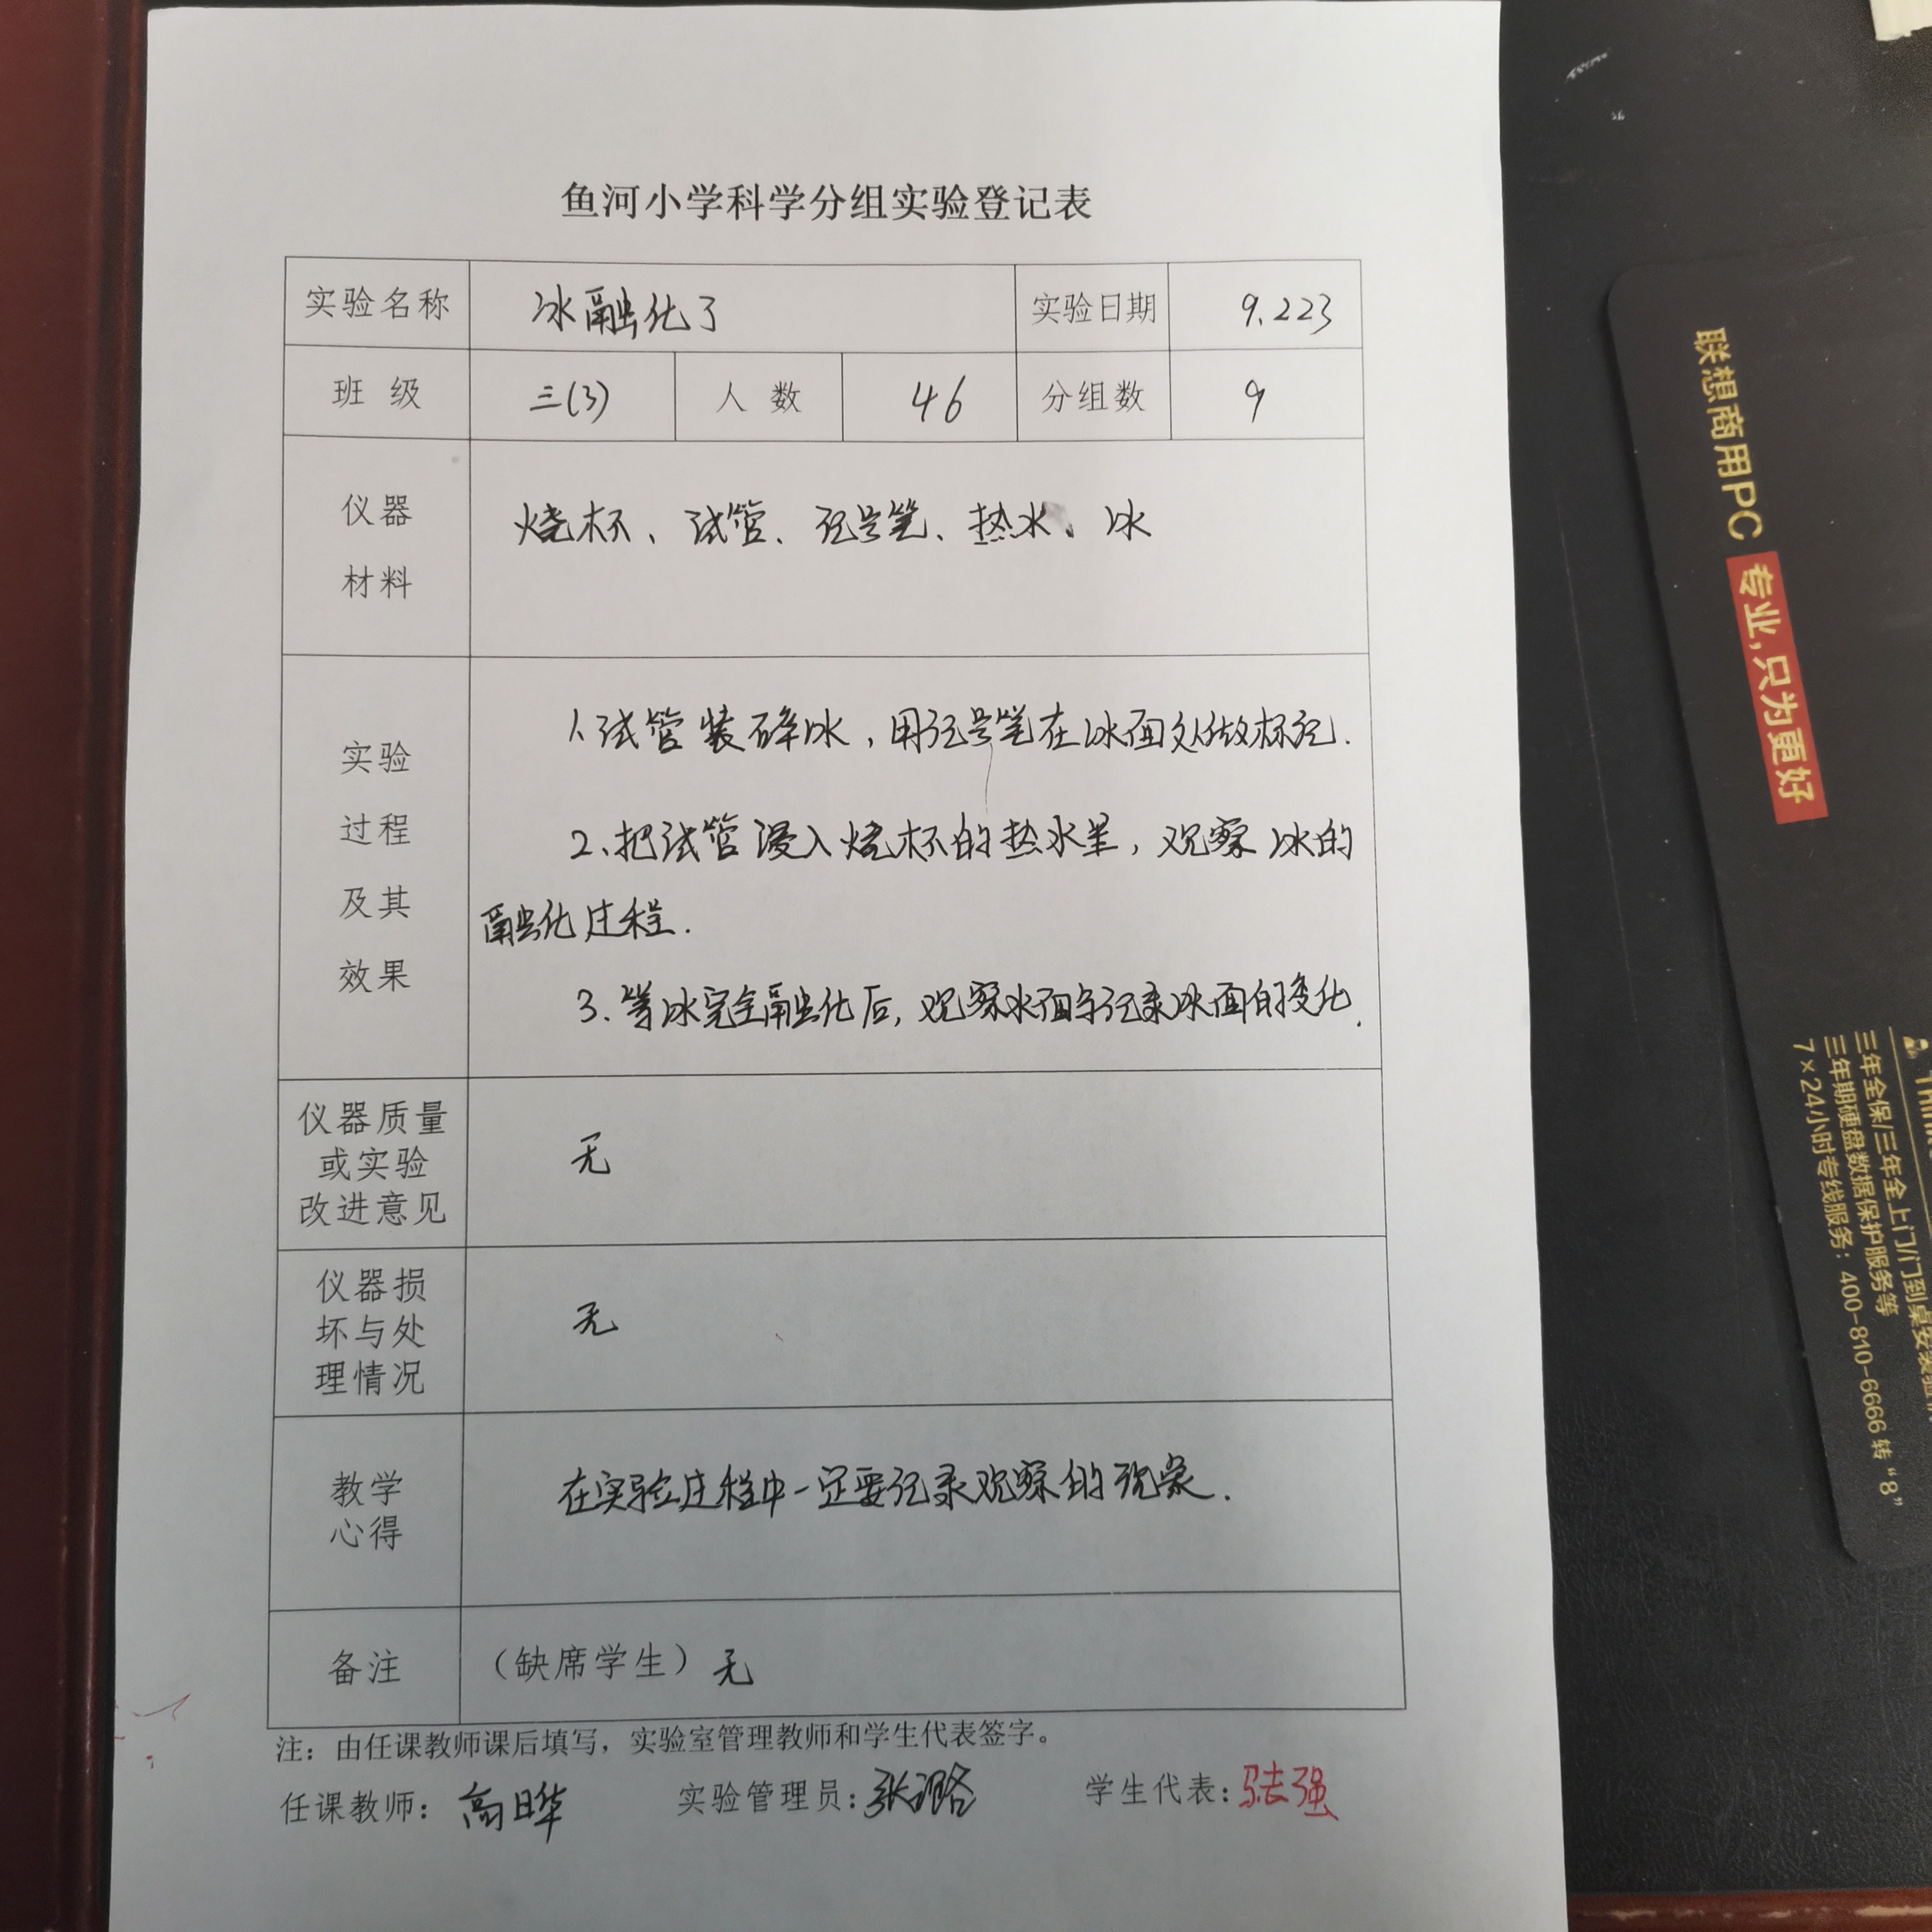 鱼河小学科学分组实验登记表
实验名称 冰融化了 实验日期 9.223
班 级 三(3) 人 数 46 分组数 9
仪器
材料
烧杯、试管、记号笔、热水、冰
实验
过程
及其
效果
1、试管装碎冰，用记号笔在冰面处做标记.
2、把试管浸入烧杯的热水里，观察冰的
融化过程.
3、等冰完全融化后，观察水面与记录冰面的变化.
仪器质量
或实验
改进意见
无
仪器损
坏与处
理情况
无
教学
心得
在实验过程中一定要记录观察的现象.
备注 （缺席学生）无
注：由任课教师课后填写，实验室管理教师和学生代表签字。
任课教师：高晔 实验管理员：张璐 学生代表：强
联想商用PC 专业,只为更好
三年全保/三年全上门/门到桌安装
三年期硬盘数据保护服务等
7×24小时专线服务：400-810-6666 转“8”